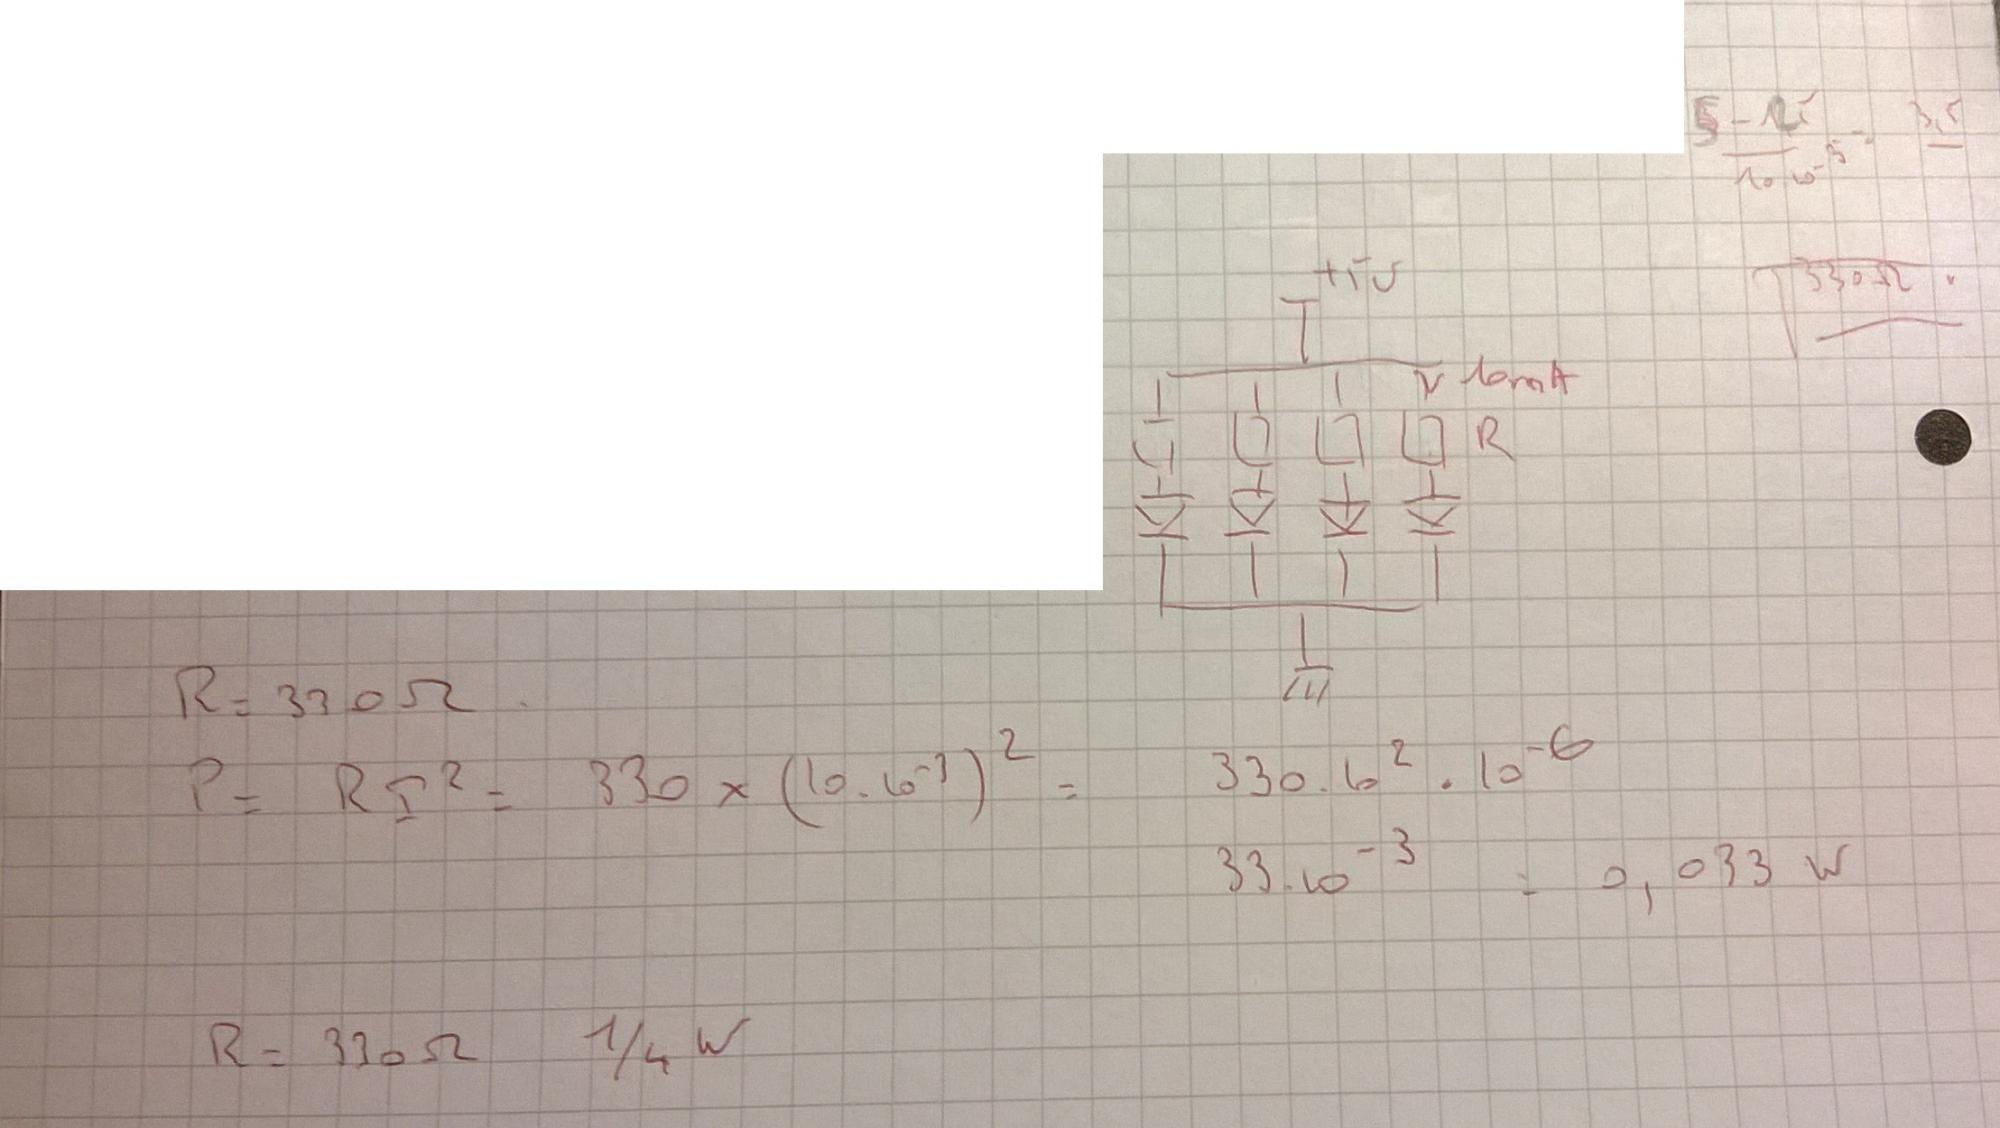 5 - 1,5 3,5
10 10⁻³ =
330Ω
+5V
10mA
R
R = 330Ω.
P = RI² = 330 × (10.10⁻³)² = 330.10².10⁻⁶
33.10⁻³ = 0,033 W
R = 330Ω 1/4 W